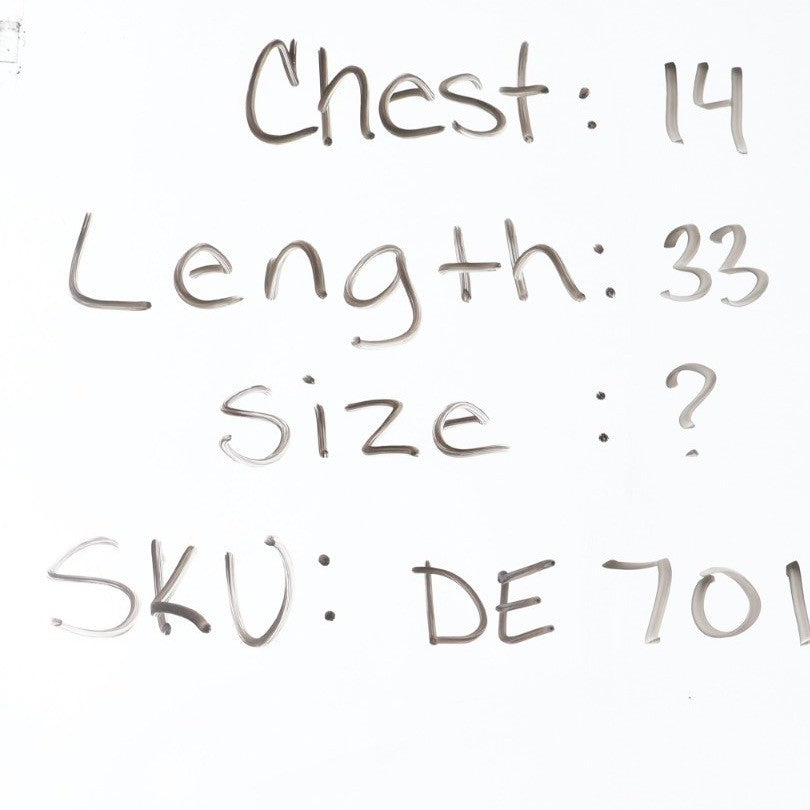 Chest: 14
Length: 33
Size : ?
SKU: DE 701